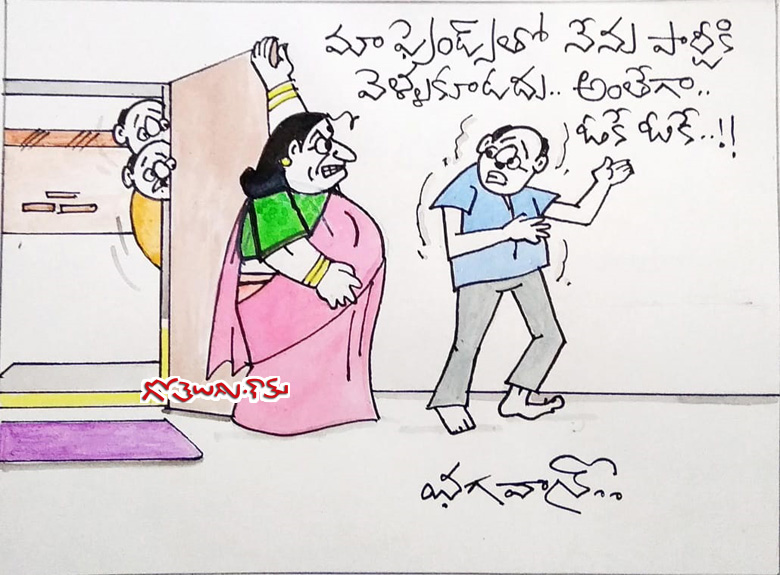 మా ఫ్రెండ్స్తో నేను పార్టీకి
వెళ్ళకూడదు.. అంతేగా..
ఓకే ఓకే..!!
గోతెలుగు.కామ్
భగవాన్..